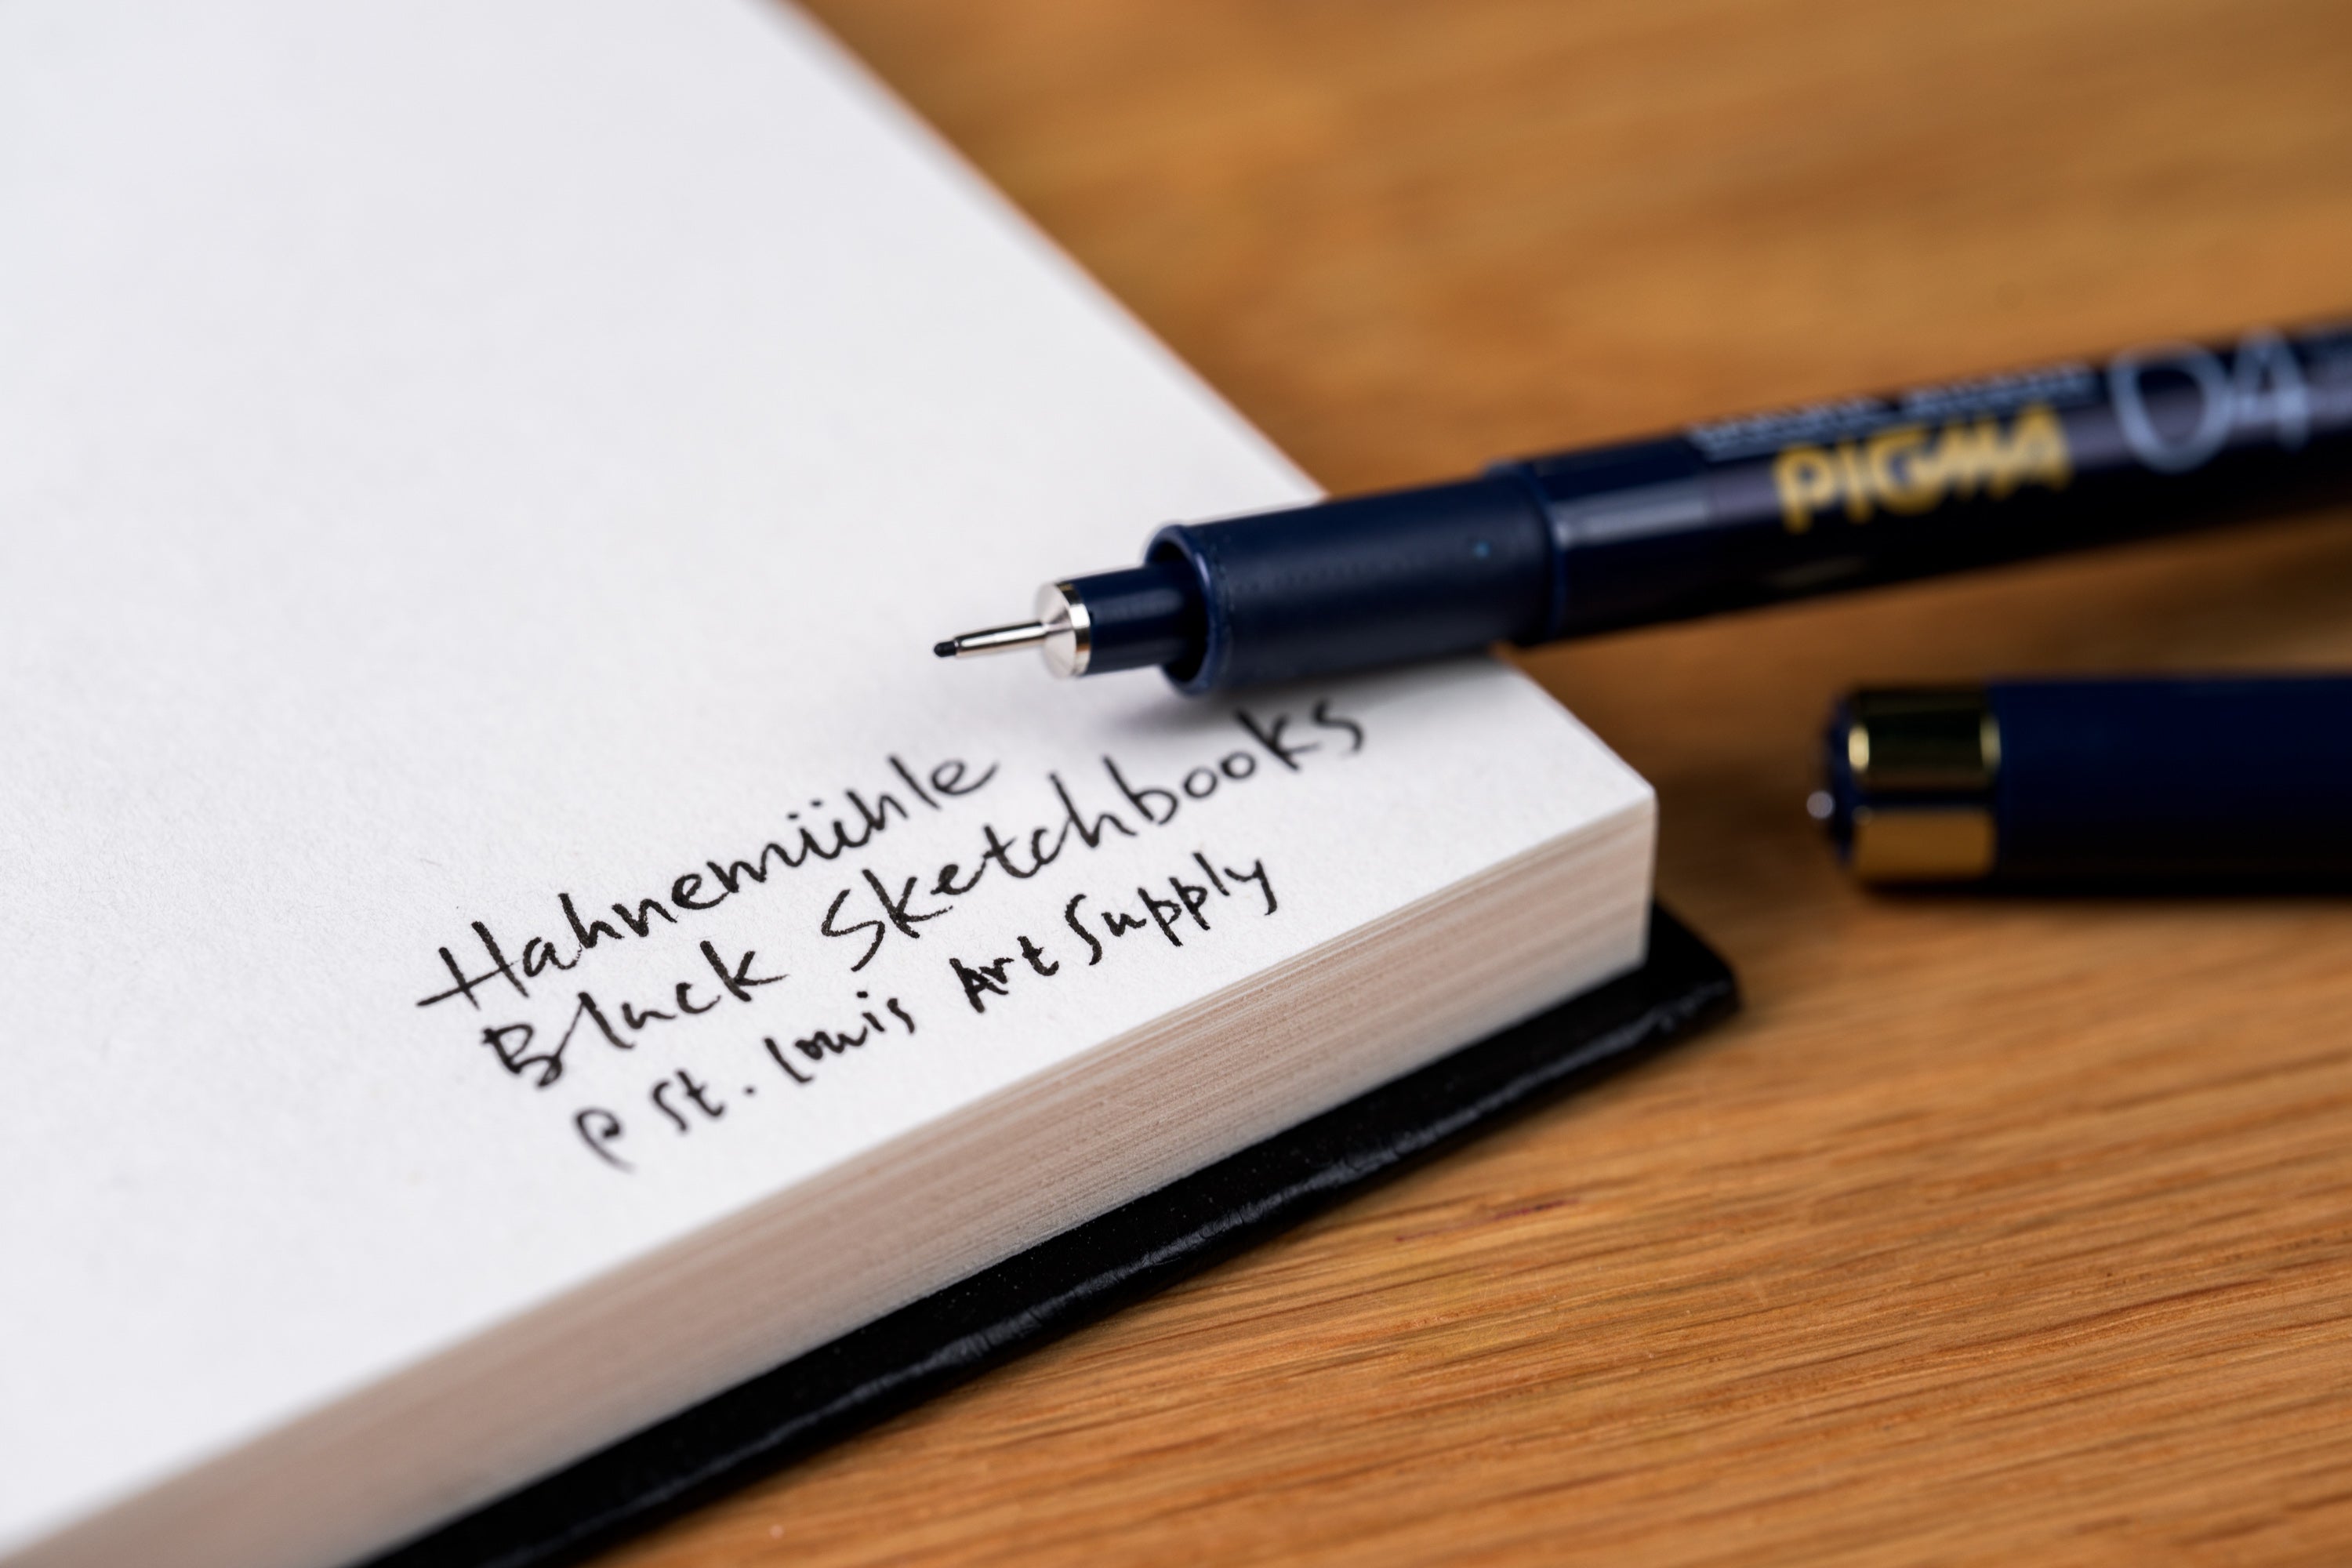 Hahnemühle
Black Sketchbooks
@ St. Louis Art Supply
PIGMA 04